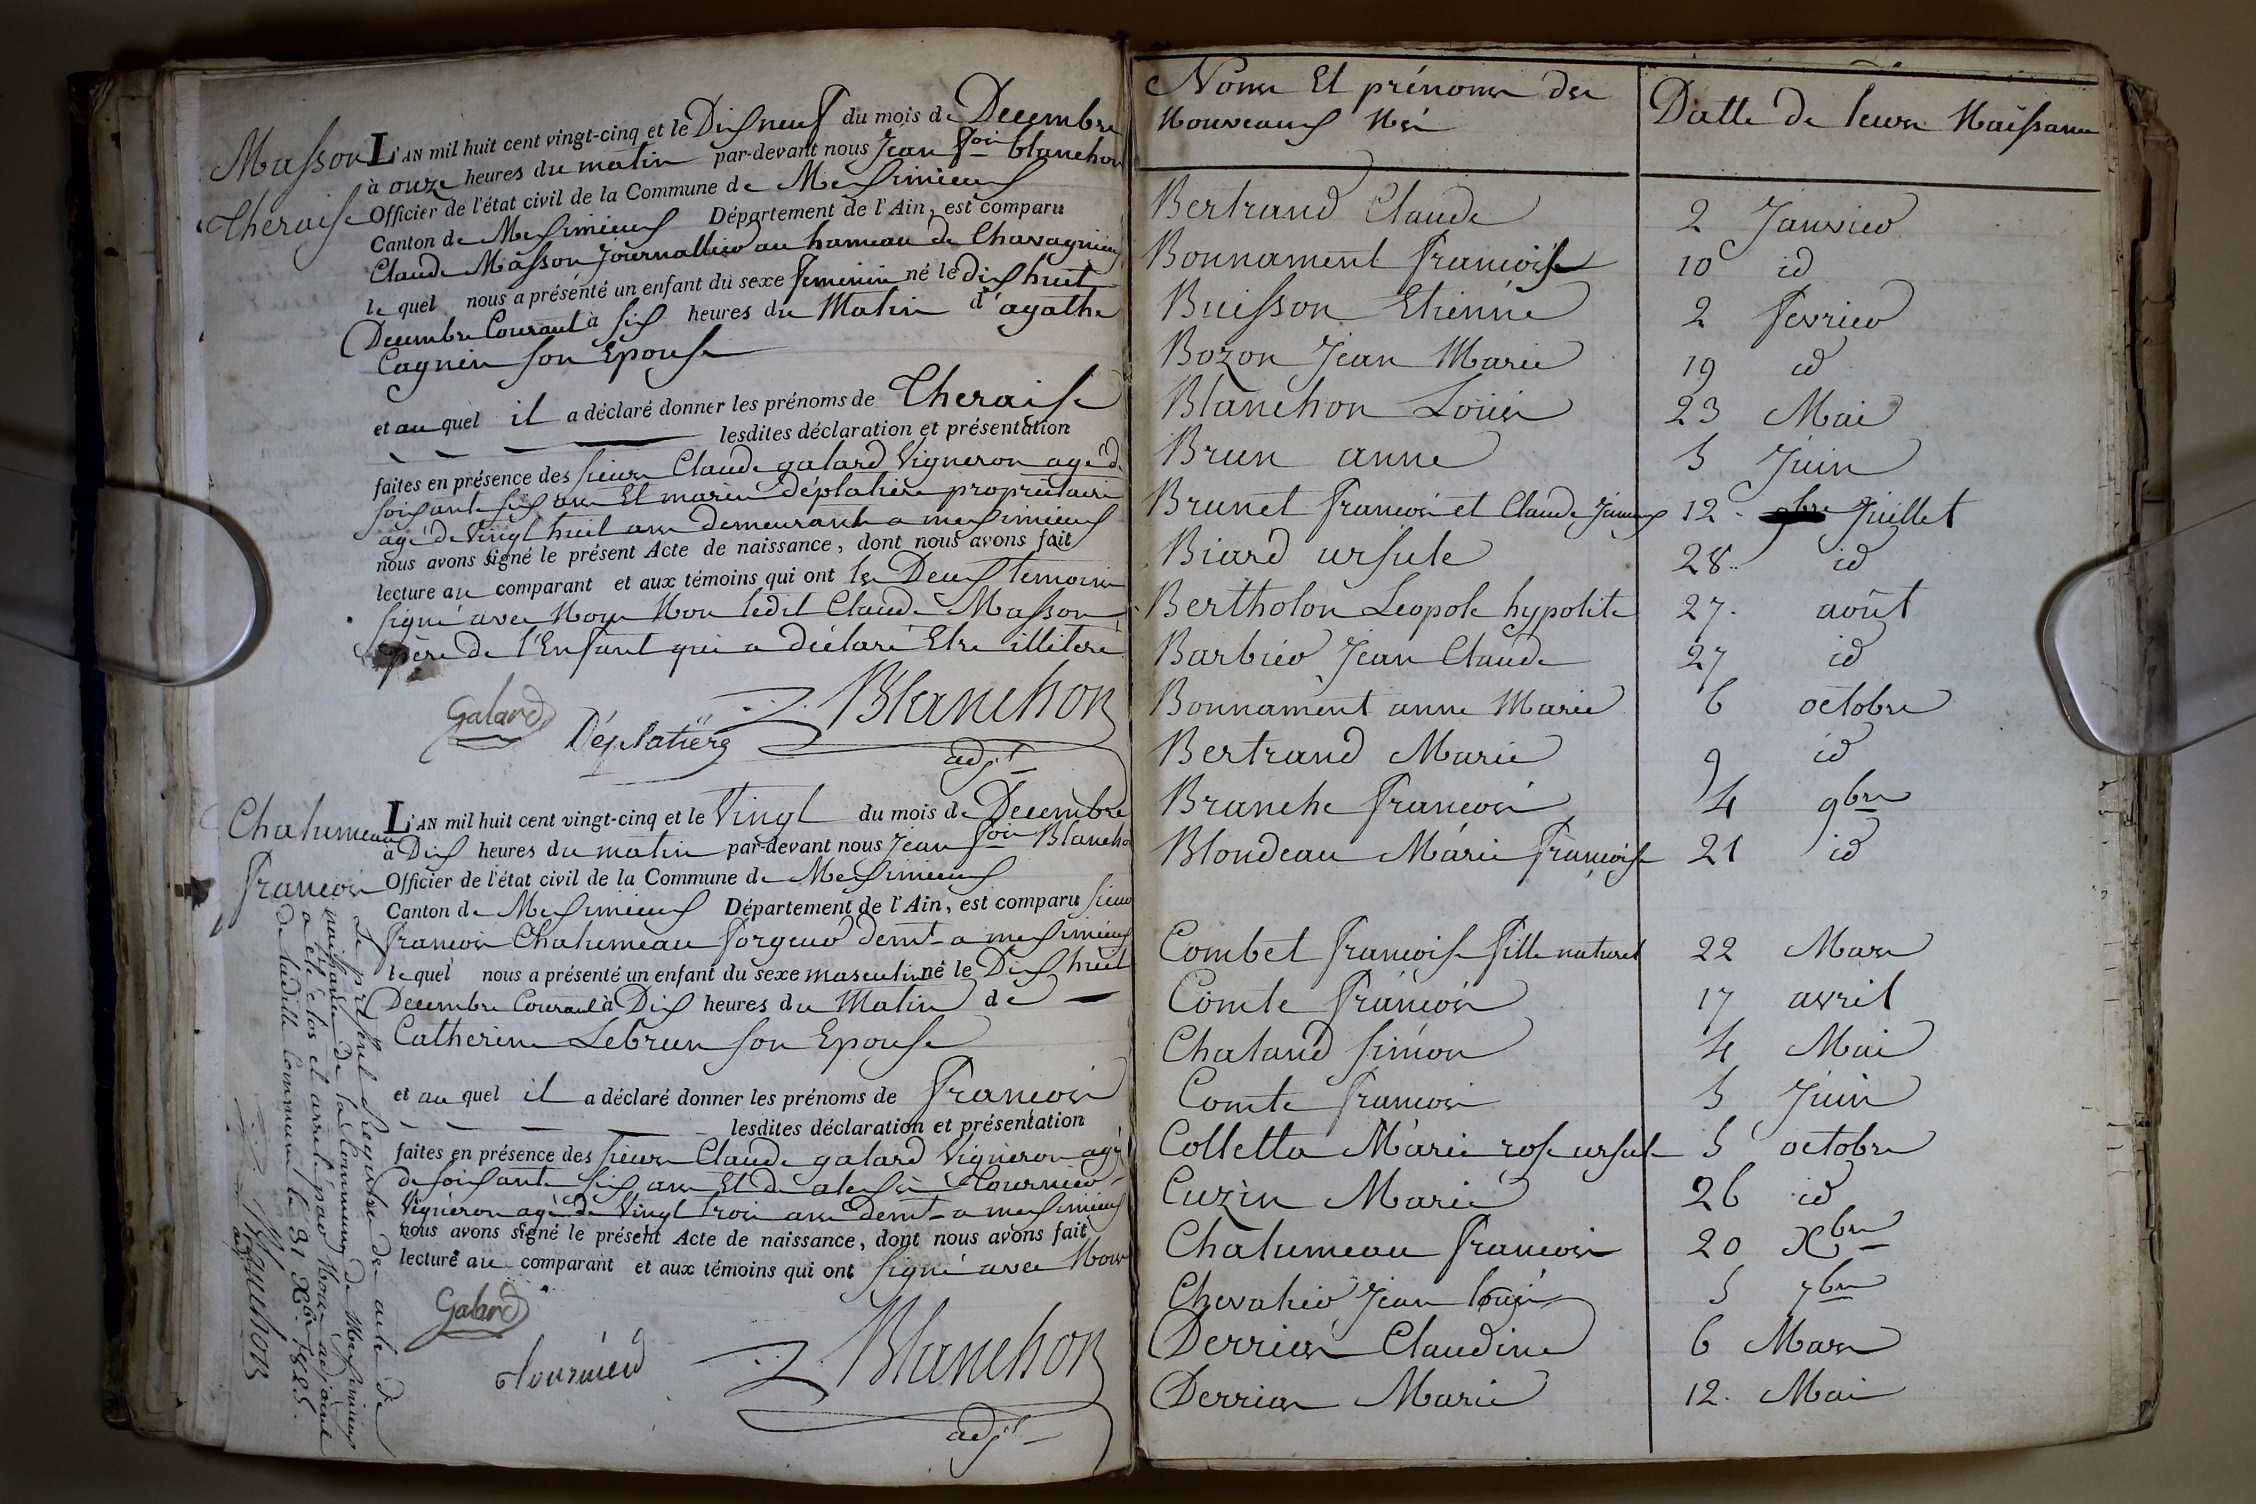 Masson
Theraise
L'AN mil huit cent vingt-cinq et le Dixneuf du mois de Decembre
à onze heures du matin par-devant nous Jean fois blanchon
Officier de l'état civil de la Commune de Meximieux
Canton de Meximieux Département de l'Ain, est comparu
Claude Masson Journallier au hameau de Chavagnieux
le quel nous a présenté un enfant du sexe feminin né le dix huit
Decembre Courant à six heures du Matin d'agathe
Cagnin son Epouse
et au quel il a déclaré donner les prénoms de Theraise
lesdites déclaration et présentation
faites en présence des sieurs Claude galard Vigneron agé de
soixante six ans Et marin déplatière propriétaire
agé de Vingt huit ans demeurants a meximieux
nous avons signé le présent Acte de naissance, dont nous avons fait
lecture au comparant et aux témoins qui ont les Deux temoins
signé avec Nous Non ledit Claude Masson
père de l'Enfant qui a déclaré Etre illiteré
Galard Déplatière Blanchon
adjt
Chalumeau
francois
L'AN mil huit cent vingt-cinq et le Vingt du mois de Decembre
à Dix heures du matin par-devant nous Jean fois Blanchon
Officier de l'état civil de la Commune de Meximieux
Canton de Meximieux Département de l'Ain, est comparu sieur
francois Chalumeau forgeur demt a meximieux
le quel nous a présenté un enfant du sexe masculin né le Dix huit
Decembre Courant à Dix heures du Matin de
Catherine Lebrun son Epouse
et au quel il a déclaré donner les prénoms de francois
lesdites déclaration et présentation
faites en présence des sieurs Claude galard Vigneron agé
de soixante six ans Et de alexis Tournier
Vigneron agé de Vingt trois ans demt a meximieux
nous avons signé le présent Acte de naissance, dont nous avons fait
lecture au comparant et aux témoins qui ont signé avec Nous
Galard
Tournier Blanchon
adjt
Le présent Registre des acte de
naissance de la Commune de Meximieux
a eté clos et arreté par Nous adjoint
de laditte Commune le 31 Xbre 1825.
Blanchon
adjt
Noms Et prénoms des
Nouveaux Nés
Datte de leurs Naissance
Bertrand Claude 2 Janvier
Bonnament francoise 10 id
Buisson Etienne 2 fevrier
Bozon Jean Marie 19 id
Blanchon Louis 23 Mai
Brun anne 5 Juin
Brunet francois et Claude Jumeux 12 Juillet
Biard ursule 28 id
Bertholon Leopole hypolite 27 août
Barbier Jean Claude 27 id
Bonnament anne Marie 6 octobre
Bertrand Marie 9 id
Branche francois 4 9bre
Blondeau Marie françoise 21 id
Combet francoise fille naturel 22 Mars
Comte francois 17 avril
Chaland simon 4 Mai
Comte francois 5 Juin
Colletta Marie rose ursule 5 octobre
Cuzin Marie 26 id
Chalumeau francois 20 Xbre
Chevalier Jean louis 5 7bre
Derrias Claudine 6 Mars
Derrias Marie 12. Mai